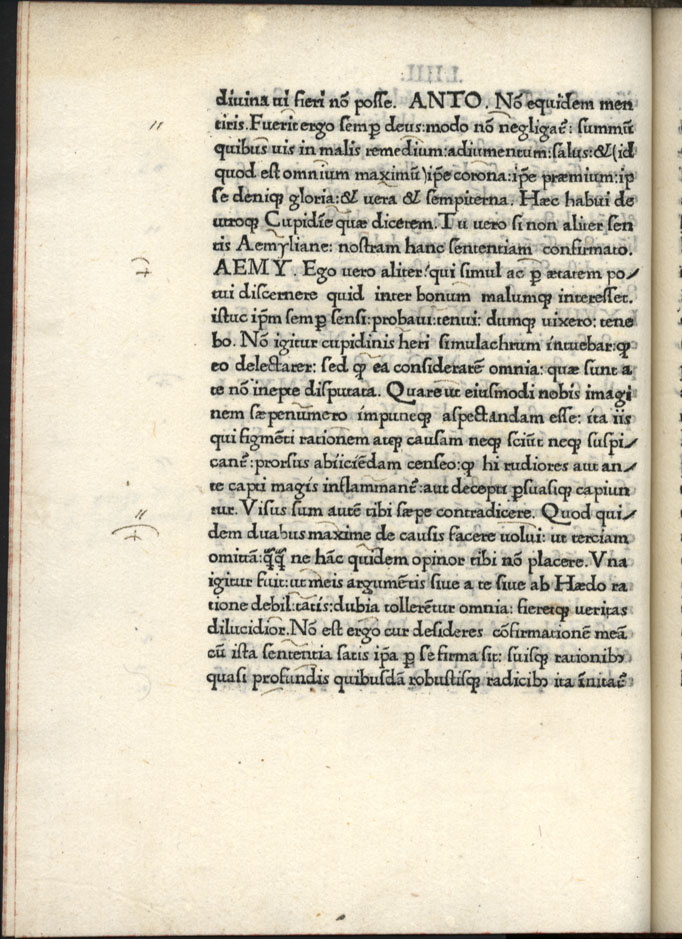 diuina ui fieri nō posse. ANTO. Nō equidem men
tiris. Fuerit ergo semꝑ deus: modo nō negligat᷑: summū
quibus uis in malis remedium: adiumentum: salus: & (id
quod est omnium maximū) ip̄e corona: ip̄e præmium: ip
se deniqꝫ gloria: & uera & sempiterna. Hæc habui de
utroqꝫ Cupidīe quæ dicerem. Tu uero si non aliter sen
tis Aemyliane: nostram hanc sententiam confirmato.
AEMY. Ego uero aliter? qui simul ac ꝑ ætatem po/
tui discernere quid inter bonum malumqꝫ interesset.
istuc ip̄m semꝑ sensi: probaui: tenui: dumqꝫ uixero: tene
bo. Nō igitur cupidinis heri simulachrum intuebar: ꝙ
eo delectarer: sed ꝙ ea considerarē omnia: quæ sunt a
te nō inepte disputata. Quare ut eiusmodi nobis imagi
nem sæpenumero impuneqꝫ aspectandam esse: ita iis
qui figmēti rationem atqꝫ causam neqꝫ sciūt neqꝫ suspi/
cant᷑: prorsus abiiciēdam censeo: ꝙ hi rudiores aut an/
te capti magis inflammant᷑: aut decepti ꝑsuasiqꝫ capiun
tur. Visus sum autē tibi sæpe contradicere. Quod qui/
dem duabus maxime de causis facere uolui: ut terciam
omittā: ꝙꝙ ne hāc quidem opinor tibi nō placere. Vna
igitur fuit: ut meis argumētis siue a te siue ab Hædo ra
tione debilitatis: dubia tollerētur omnia: fieretqꝫ ueritas
dilucidior. Nō est ergo cur desideres cōfirmationē meā
cū ista sententia satis ip̄a ꝑ se firma sit: suisqꝫ rationibꝫ
quasi profundis quibusdā robustisqꝫ radicibꝫ ita īnitat᷑